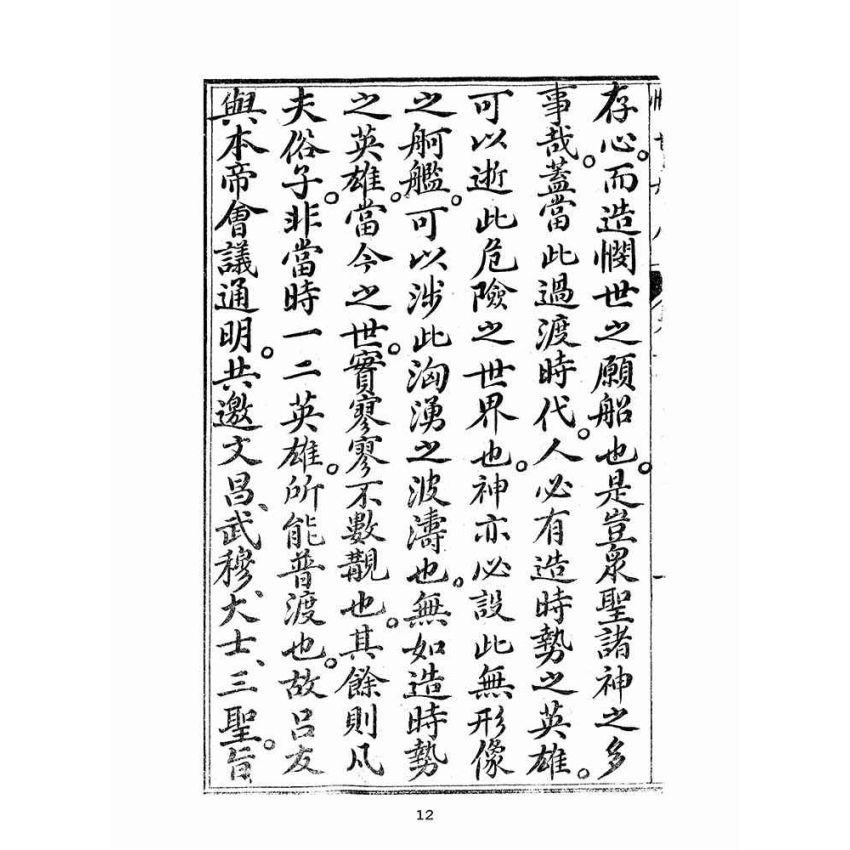 存心。而造憫世之願船也。是豈衆聖諸神之多
事哉。蓋當此過渡時代。人必有造時勢之英雄。
可以逝此危險之世界也。神亦必設此無形像
之舸艦。可以涉此洶湧之波濤也。無如造時勢
之英雄。當今之世。實寥寥不數覯也。其餘則凡
夫俗子。非當時一二英雄。所能普渡也。故呂友
與本帝會議通明。共邀文昌、武穆、大士、三聖。旨
12